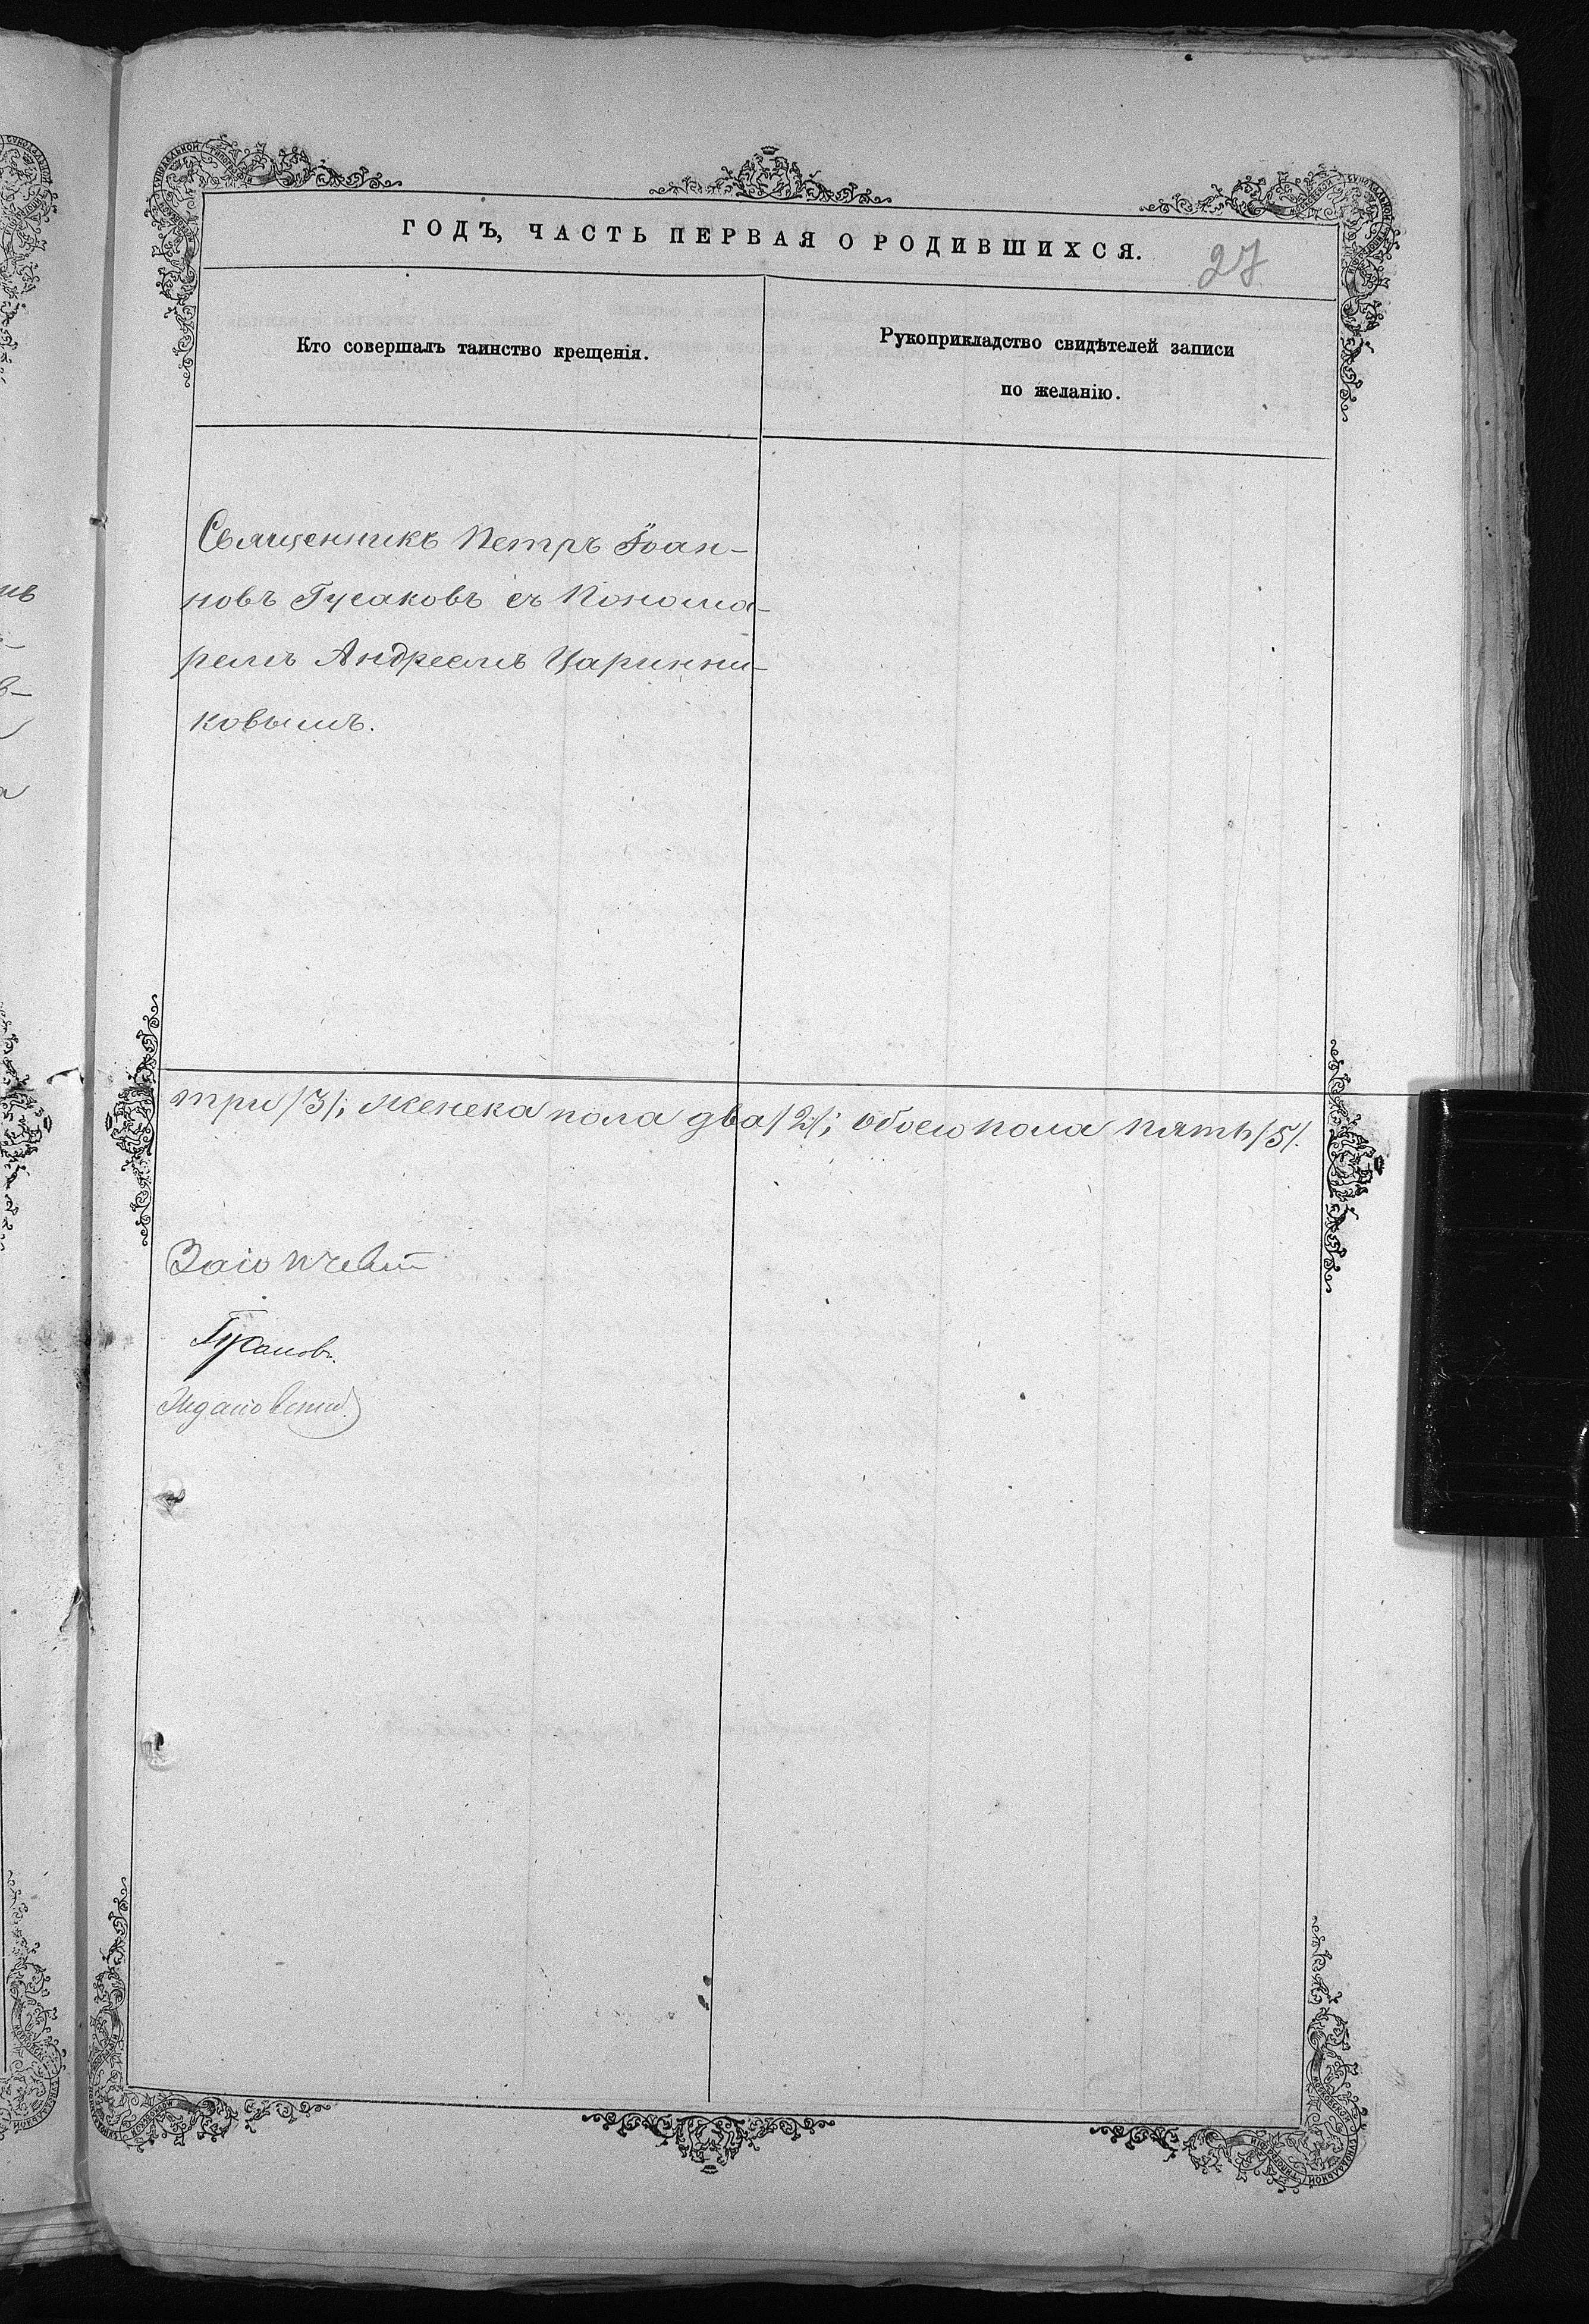 ГОДЪ, ЧАСТЬ ПЕРВАЯ О РОДИВШИХСЯ.
27
Кто совершалъ таинство крещенія.
Рукоприкладство свидѣтелей записи
по желанію.
Священникъ Петръ Іоан-
новъ Гусаковъ съ Понома-
ремъ Андреемъ Царинни-
ковымъ.
три /3/; женска пола два /2/; обоего пола пять /5/.
Гусаковъ